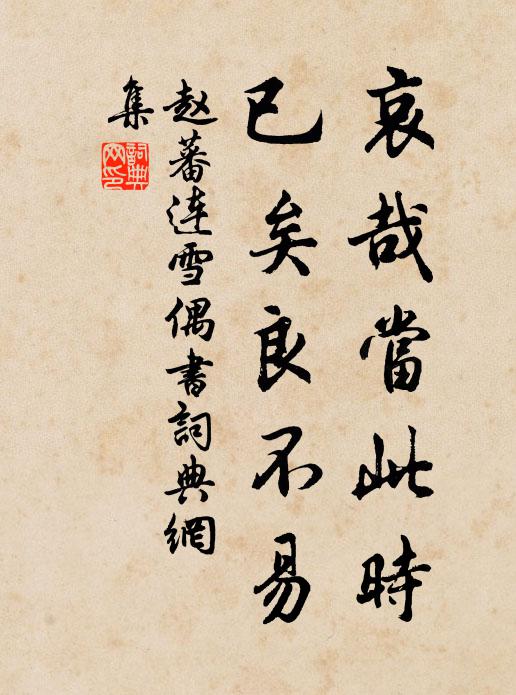 哀哉當此時
已矣良不易
赵蕃連雪偶書詞典網
集
詞典网印